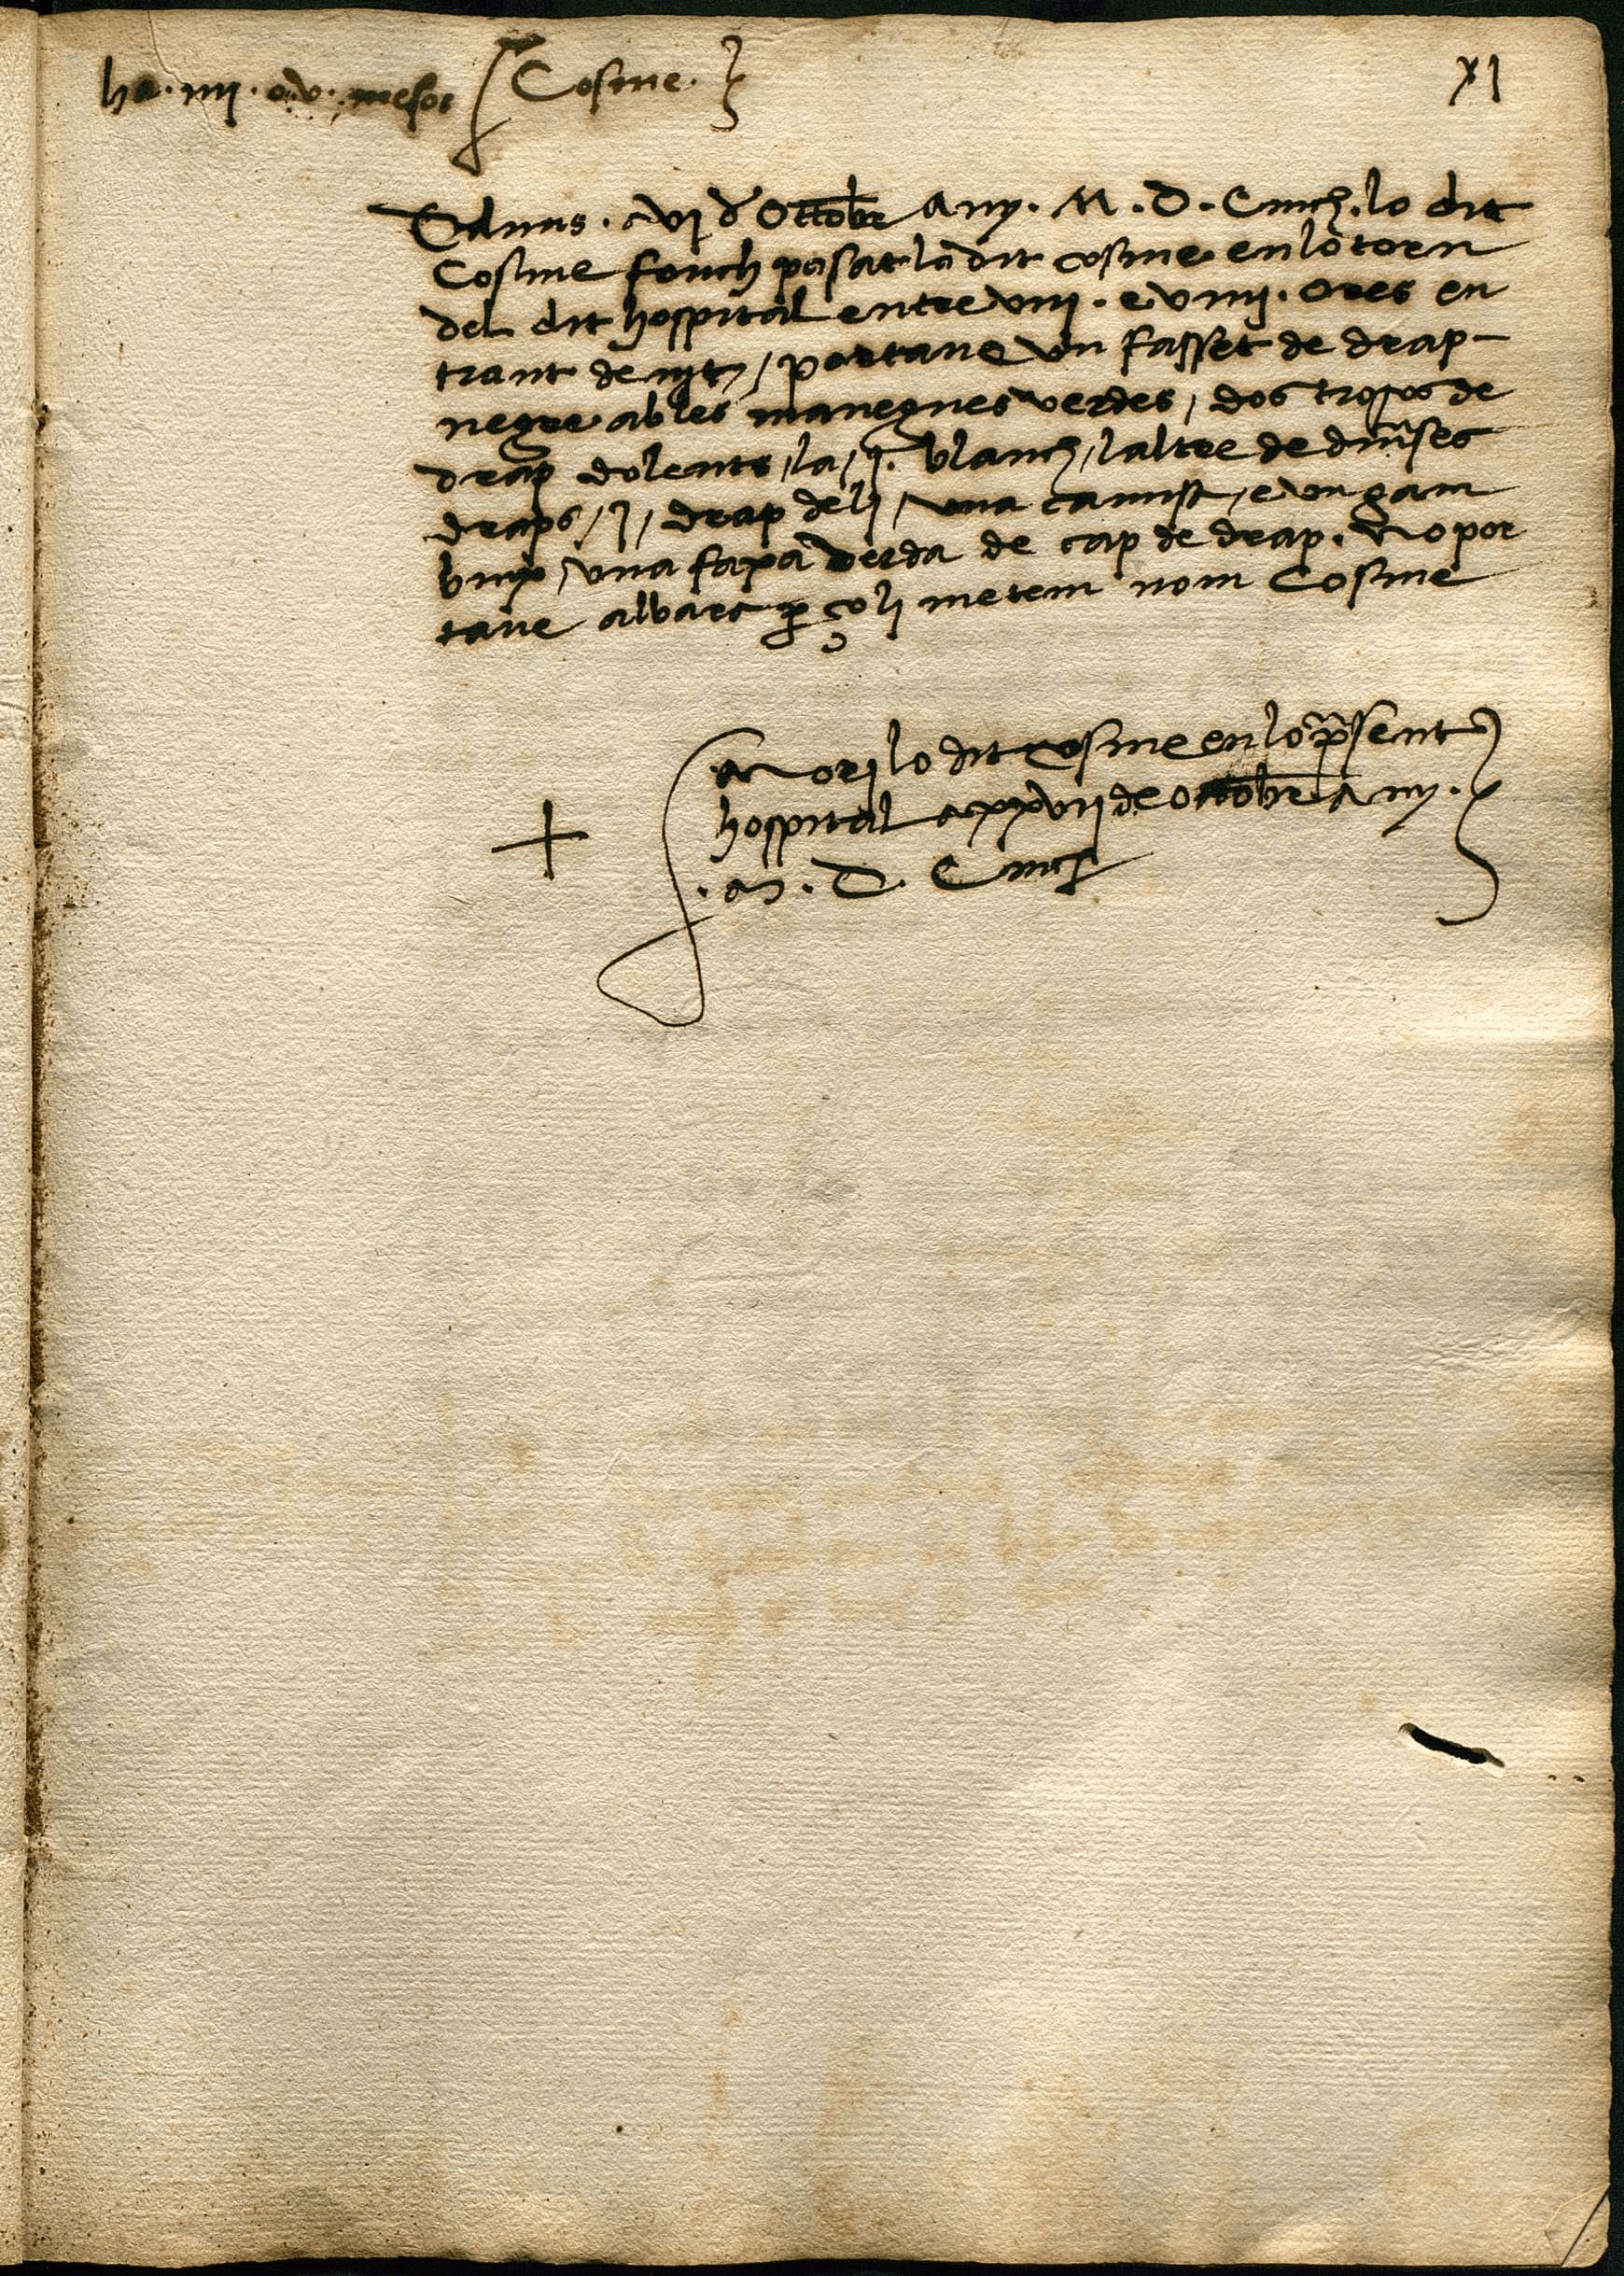 ha . iiii . o . v . mesos Cosme . XI
Diluns . a vi d Ottobr Any . M . D . Cinch . lo dit
Cosme fonch posat lo dit cosme en lo torn
del dit hospital entre viii . e viiii . ores en
trant de nit / portave un fasset de drap -
negre ab les manegues verdes / dos trosos de
drap dolents / la / j . blanch / laltre de diverses
draps / j / drap de li / una camisa / e un gam
buix / una faxa verda de cap de drap . No por
tave albara per ço li metem nom Cosme
+
Mori lo dit cosme en lo psent
hospital a xxvii de Ottobr Any .
. M . D . Cinch